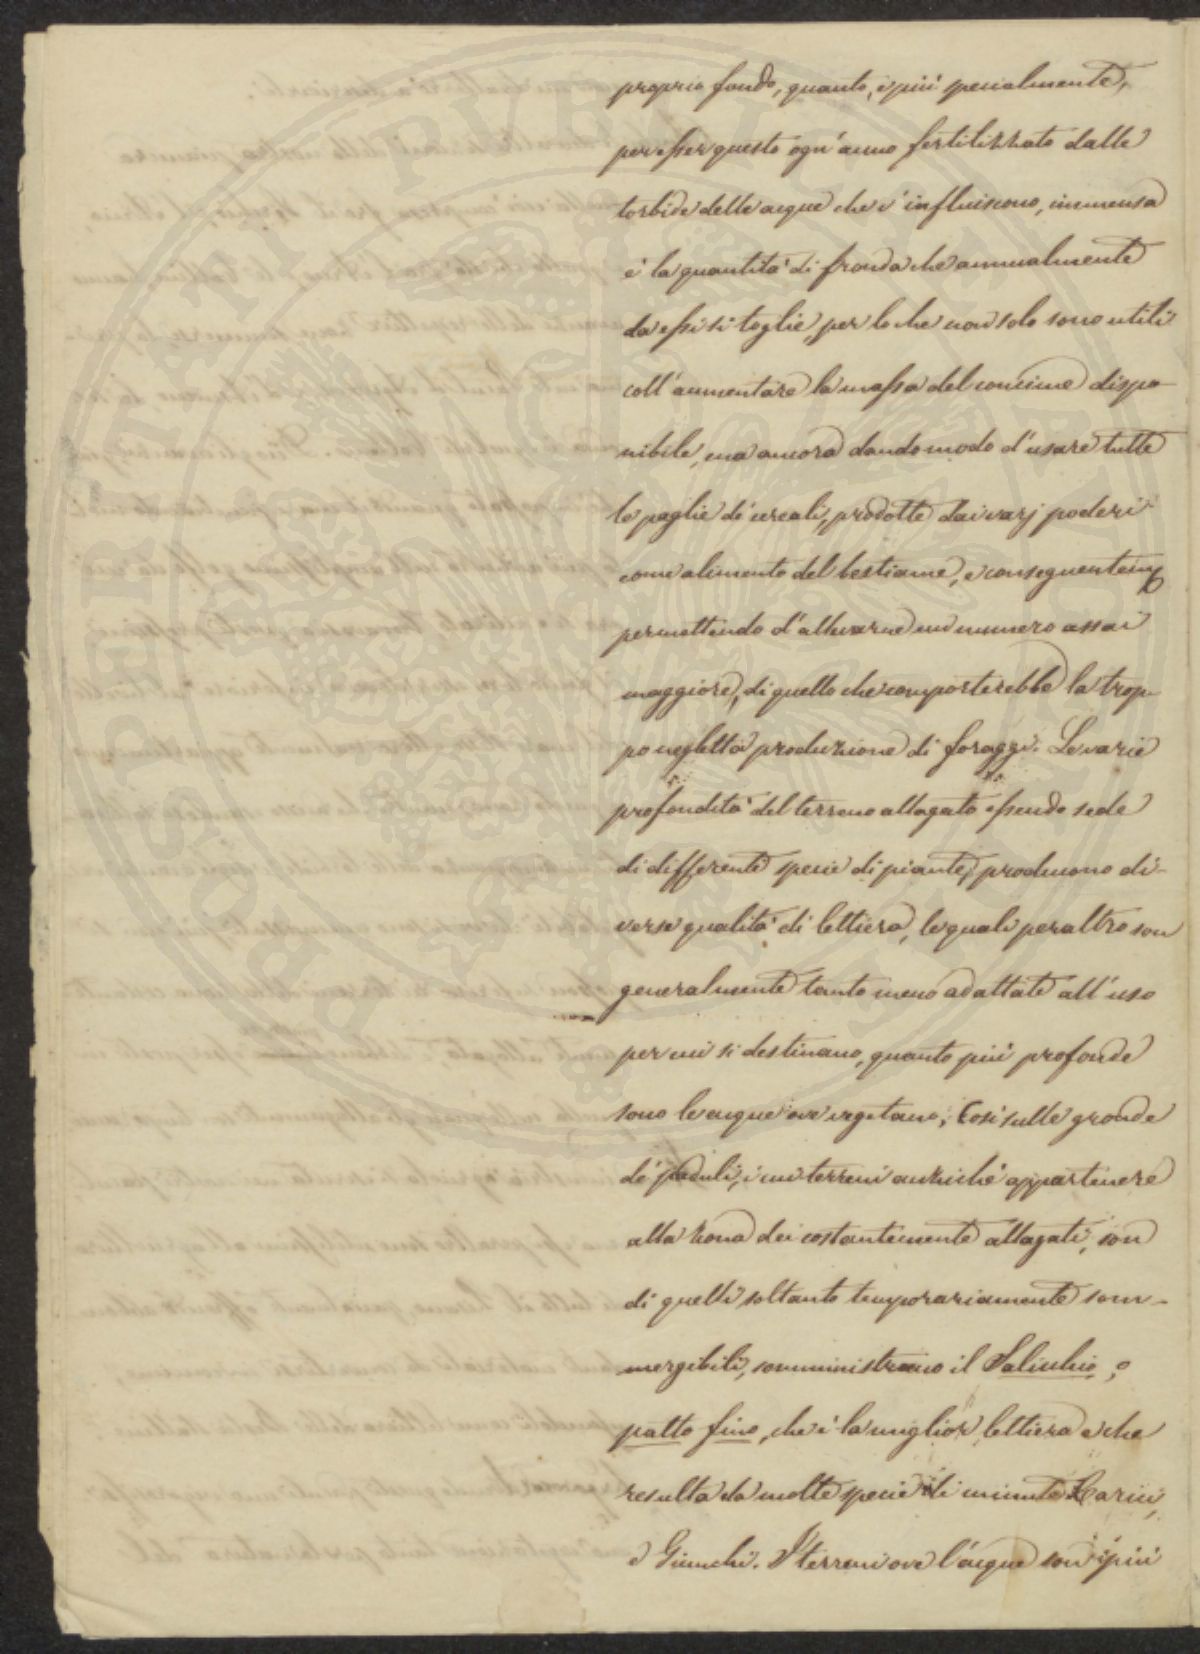 proprio fondo, quanto, e più specialmente,
per esser questo ogn'anno fertilizzato dalle
torbide delle acque che v'influiscono, immensa
è la quantità di fronda che annualmente
da essi si toglie, per lo che non solo sono utili
coll'aumentare la massa del concime dispo-
nibile, ma ancora dando modo d'usare tutte
le paglie de' cereali, prodotte dai varj poderi
come alimento del bestiame, e conseguentem.
permettendo d'allevarne un numero assai
maggiore, di quello che comporterebbe la trop-
po negletta produzione di foraggi. Le varie
profondità del terreno allagato essendo sede
di differenti specie di piante, producono di-
verse qualità di lettiera, le quali peraltro son
generalmente tanto meno adattate all'uso
per cui si destinano, quanto più profonde
sono le acque ove vegetano; Così sulle gronde
de' paduli, i cui terreni anziché appartenere
alla zona dei costantemente allagati, son
di quelli soltanto temporariamente som-
mergibili, somministrano il Salicchio, o
patto fino, che è la miglior lettiera e che
resulta da molte specie di minute Carici,
e Giunchi. I terreni ove l'acque son più
PROSPERITATI PUBLICAE